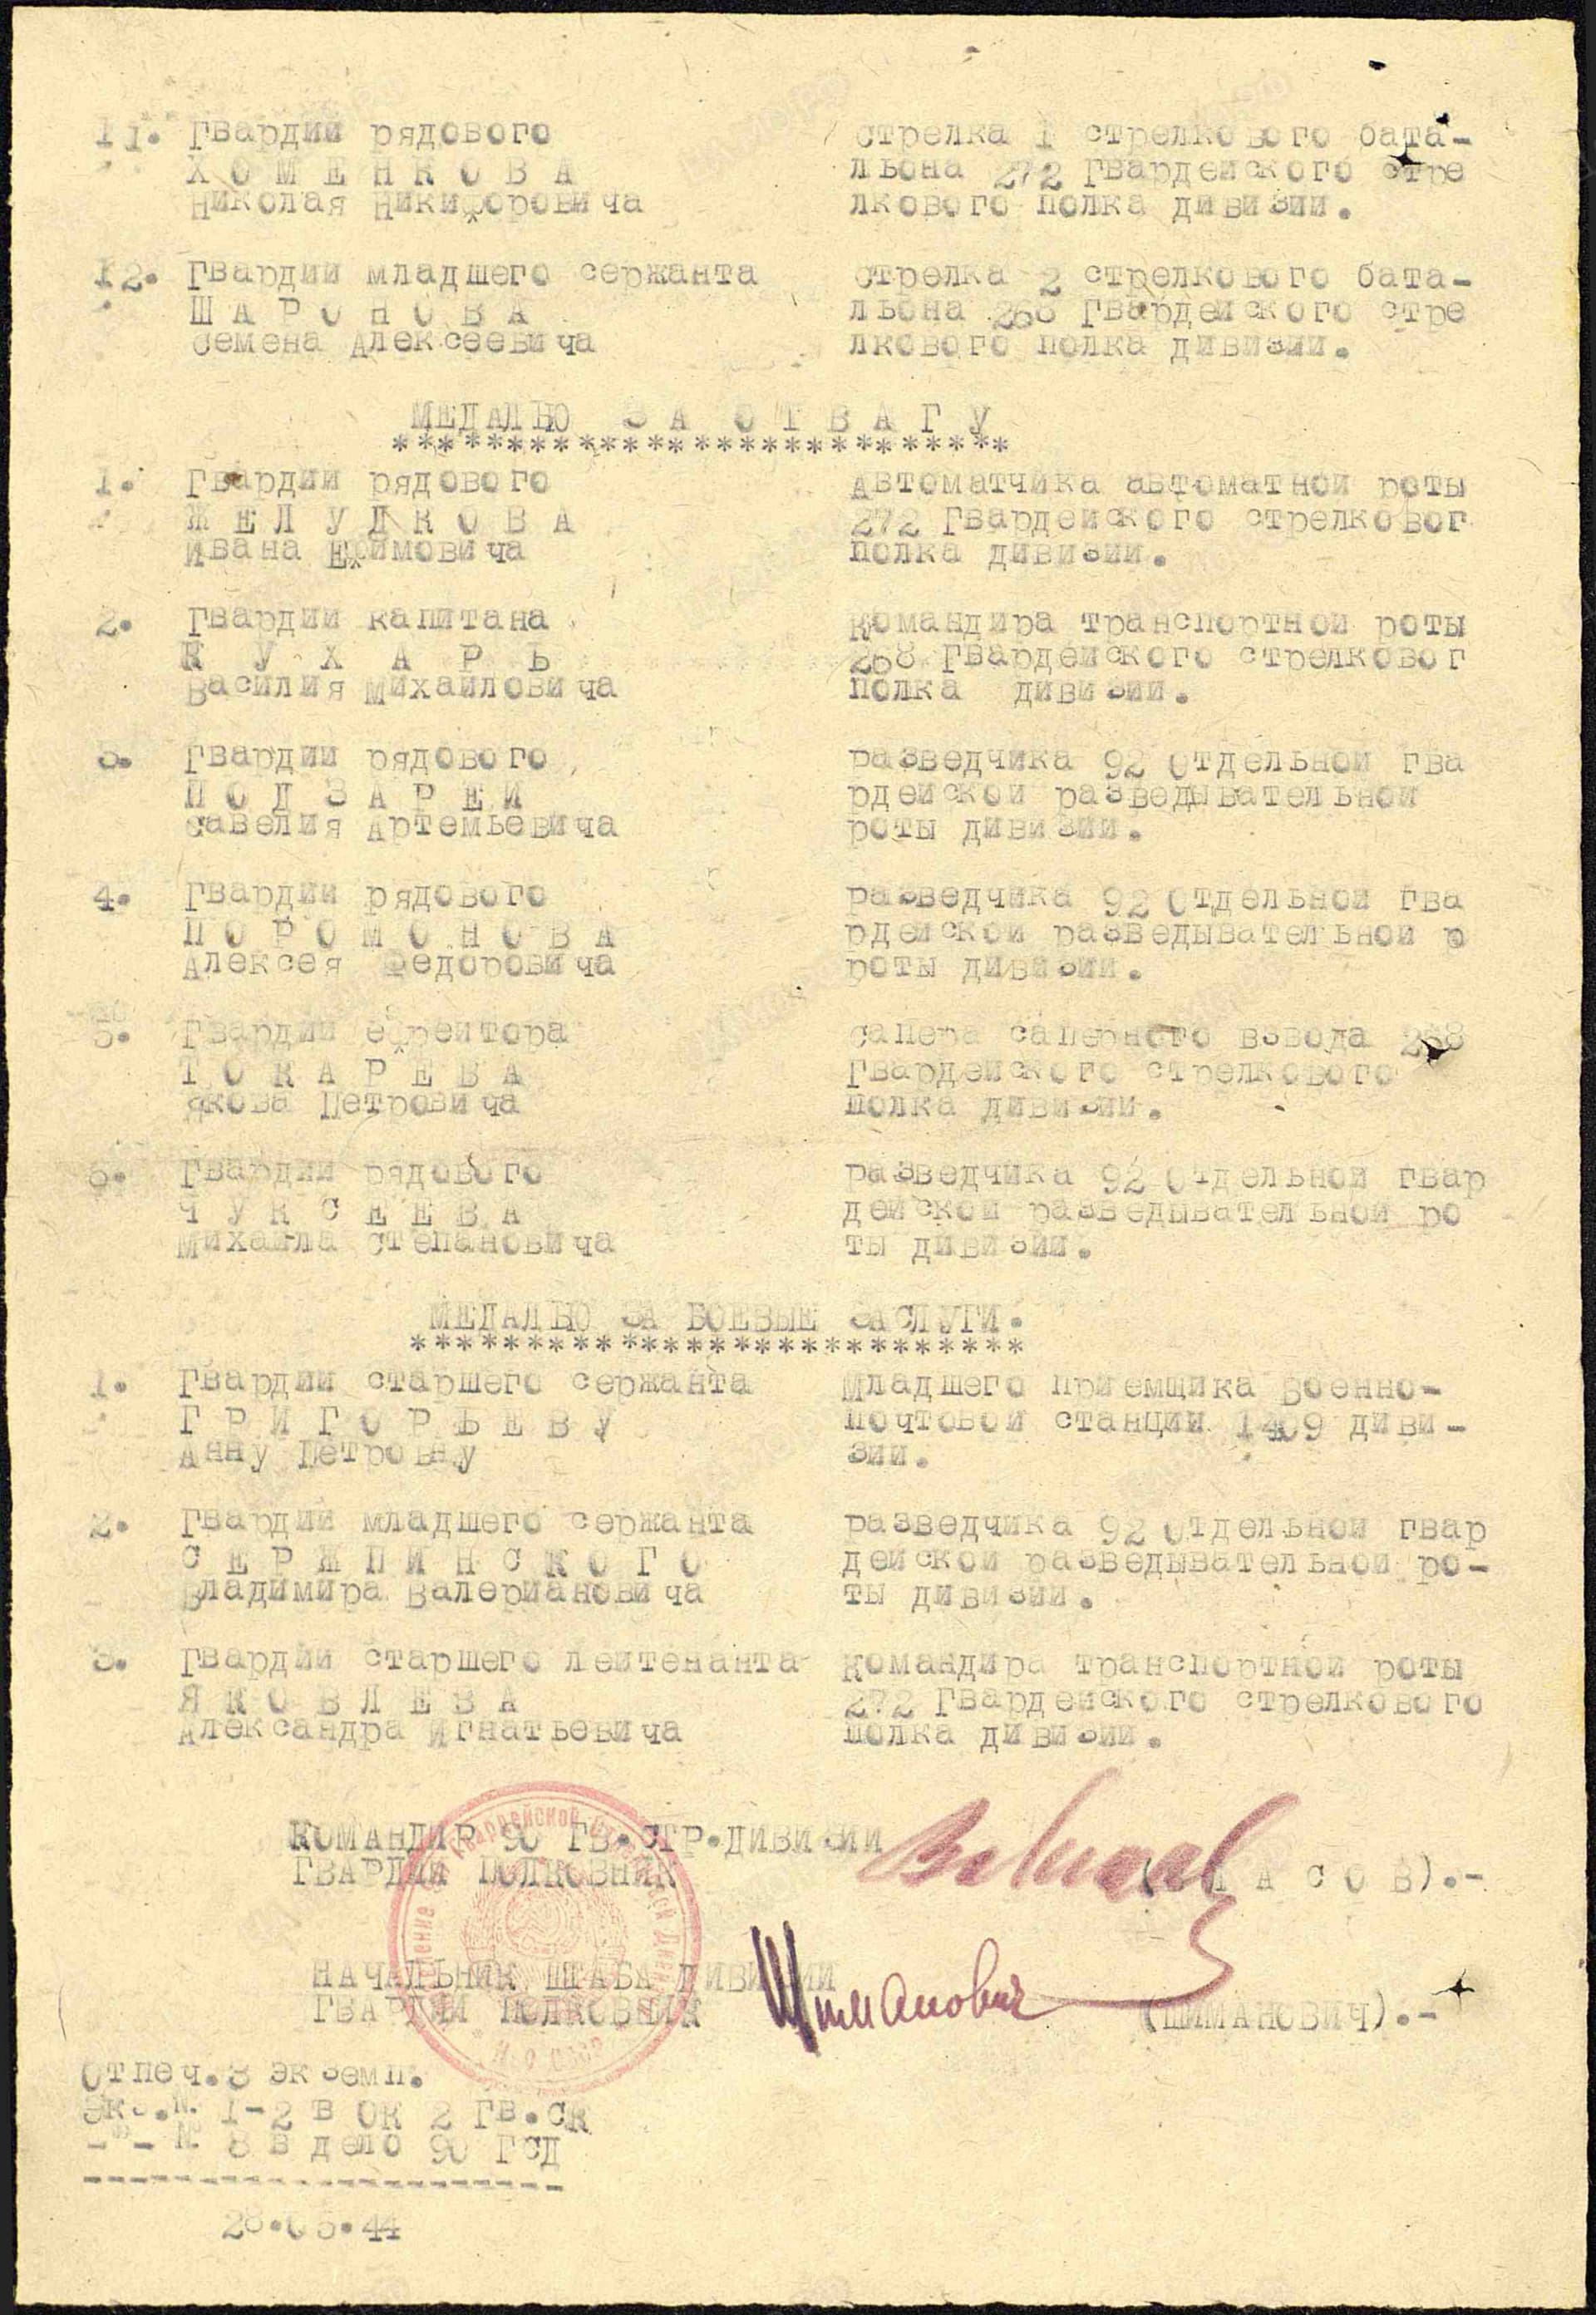 11. Гвардии рядового стрелка 1 стрелкового бата-
ХОМЕНКОВА льона 272 Гвардейского стре
Николая Никифоровича лкового полка дивизии.
12. Гвардии младшего сержанта стрелка 2 стрелкового бата-
ШАРОНОВА льона 268 Гвардейского стре
Семена Алексеевича лкового полка дивизии.
МЕДАЛЬЮ ЗА ОТВАГУ
**************************
1. Гвардии рядового Автоматчика автоматной роты
ЖЕЛУДКОВА 272 Гвардейского стрелковог
Ивана Ефимовича полка дивизии.
2. Гвардии капитана Командира транспортной роты
КУХАРЬ 268 Гвардейского стрелковог
Василия Михайловича полка дивизии.
3. Гвардии рядового разведчика 92 Отдельной гва
ПОДЗАРЕЙ рдейской разведывательной
Савелия Артемьевича роты дивизии.
4. Гвардии рядового разведчика 92 Отдельной гва
ПОРОМОНОВА рдейской разведывательной р
Алексея Федоровича роты дивизии.
5. Гвардии ефрейтора сапера саперного взвода 268
ТОКАРЕВА Гвардейского стрелкового
Якова Петровича полка дивизии.
6. Гвардии рядового разведчика 92 Отдельной гвар
ЧУКСЕЕВА дейской разведывательной ро
Михаила Степановича ты дивизии.
МЕДАЛЬЮ ЗА БОЕВЫЕ ЗАСЛУГИ.
**************************
1. Гвардии старшего сержанта Младшего приемщика Военно-
ГРИГОРЬЕВУ почтовой станции 1409 диви-
Анну Петровну зии.
2. Гвардии младшего сержанта разведчика 92 Отдельной гвар
СЕРЖПИНСКОГО дейской разведывательной ро-
Владимира Валериановича ты дивизии.
3. Гвардии старшего лейтенанта Командира транспортной роты
ЯКОВЛЕВА 272 Гвардейского стрелкового
Александра Игнатьевича полка дивизии.
КОМАНДИР 90 ГВ.СТР.ДИВИЗИИ
ГВАРДИИ ПОЛКОВНИК (ВЛАСОВ).-
НАЧАЛЬНИК ШТАБА ДИВИЗИИ
Шиманович
ГВАРДИИ ПОЛКОВНИК (ШИМАНОВИЧ).-
Отпеч.3 экземп.
Экз.№ 1-2 в ОК 2 ГВ.СК
-"- № 3 в дело 90 ГСД
---------------------